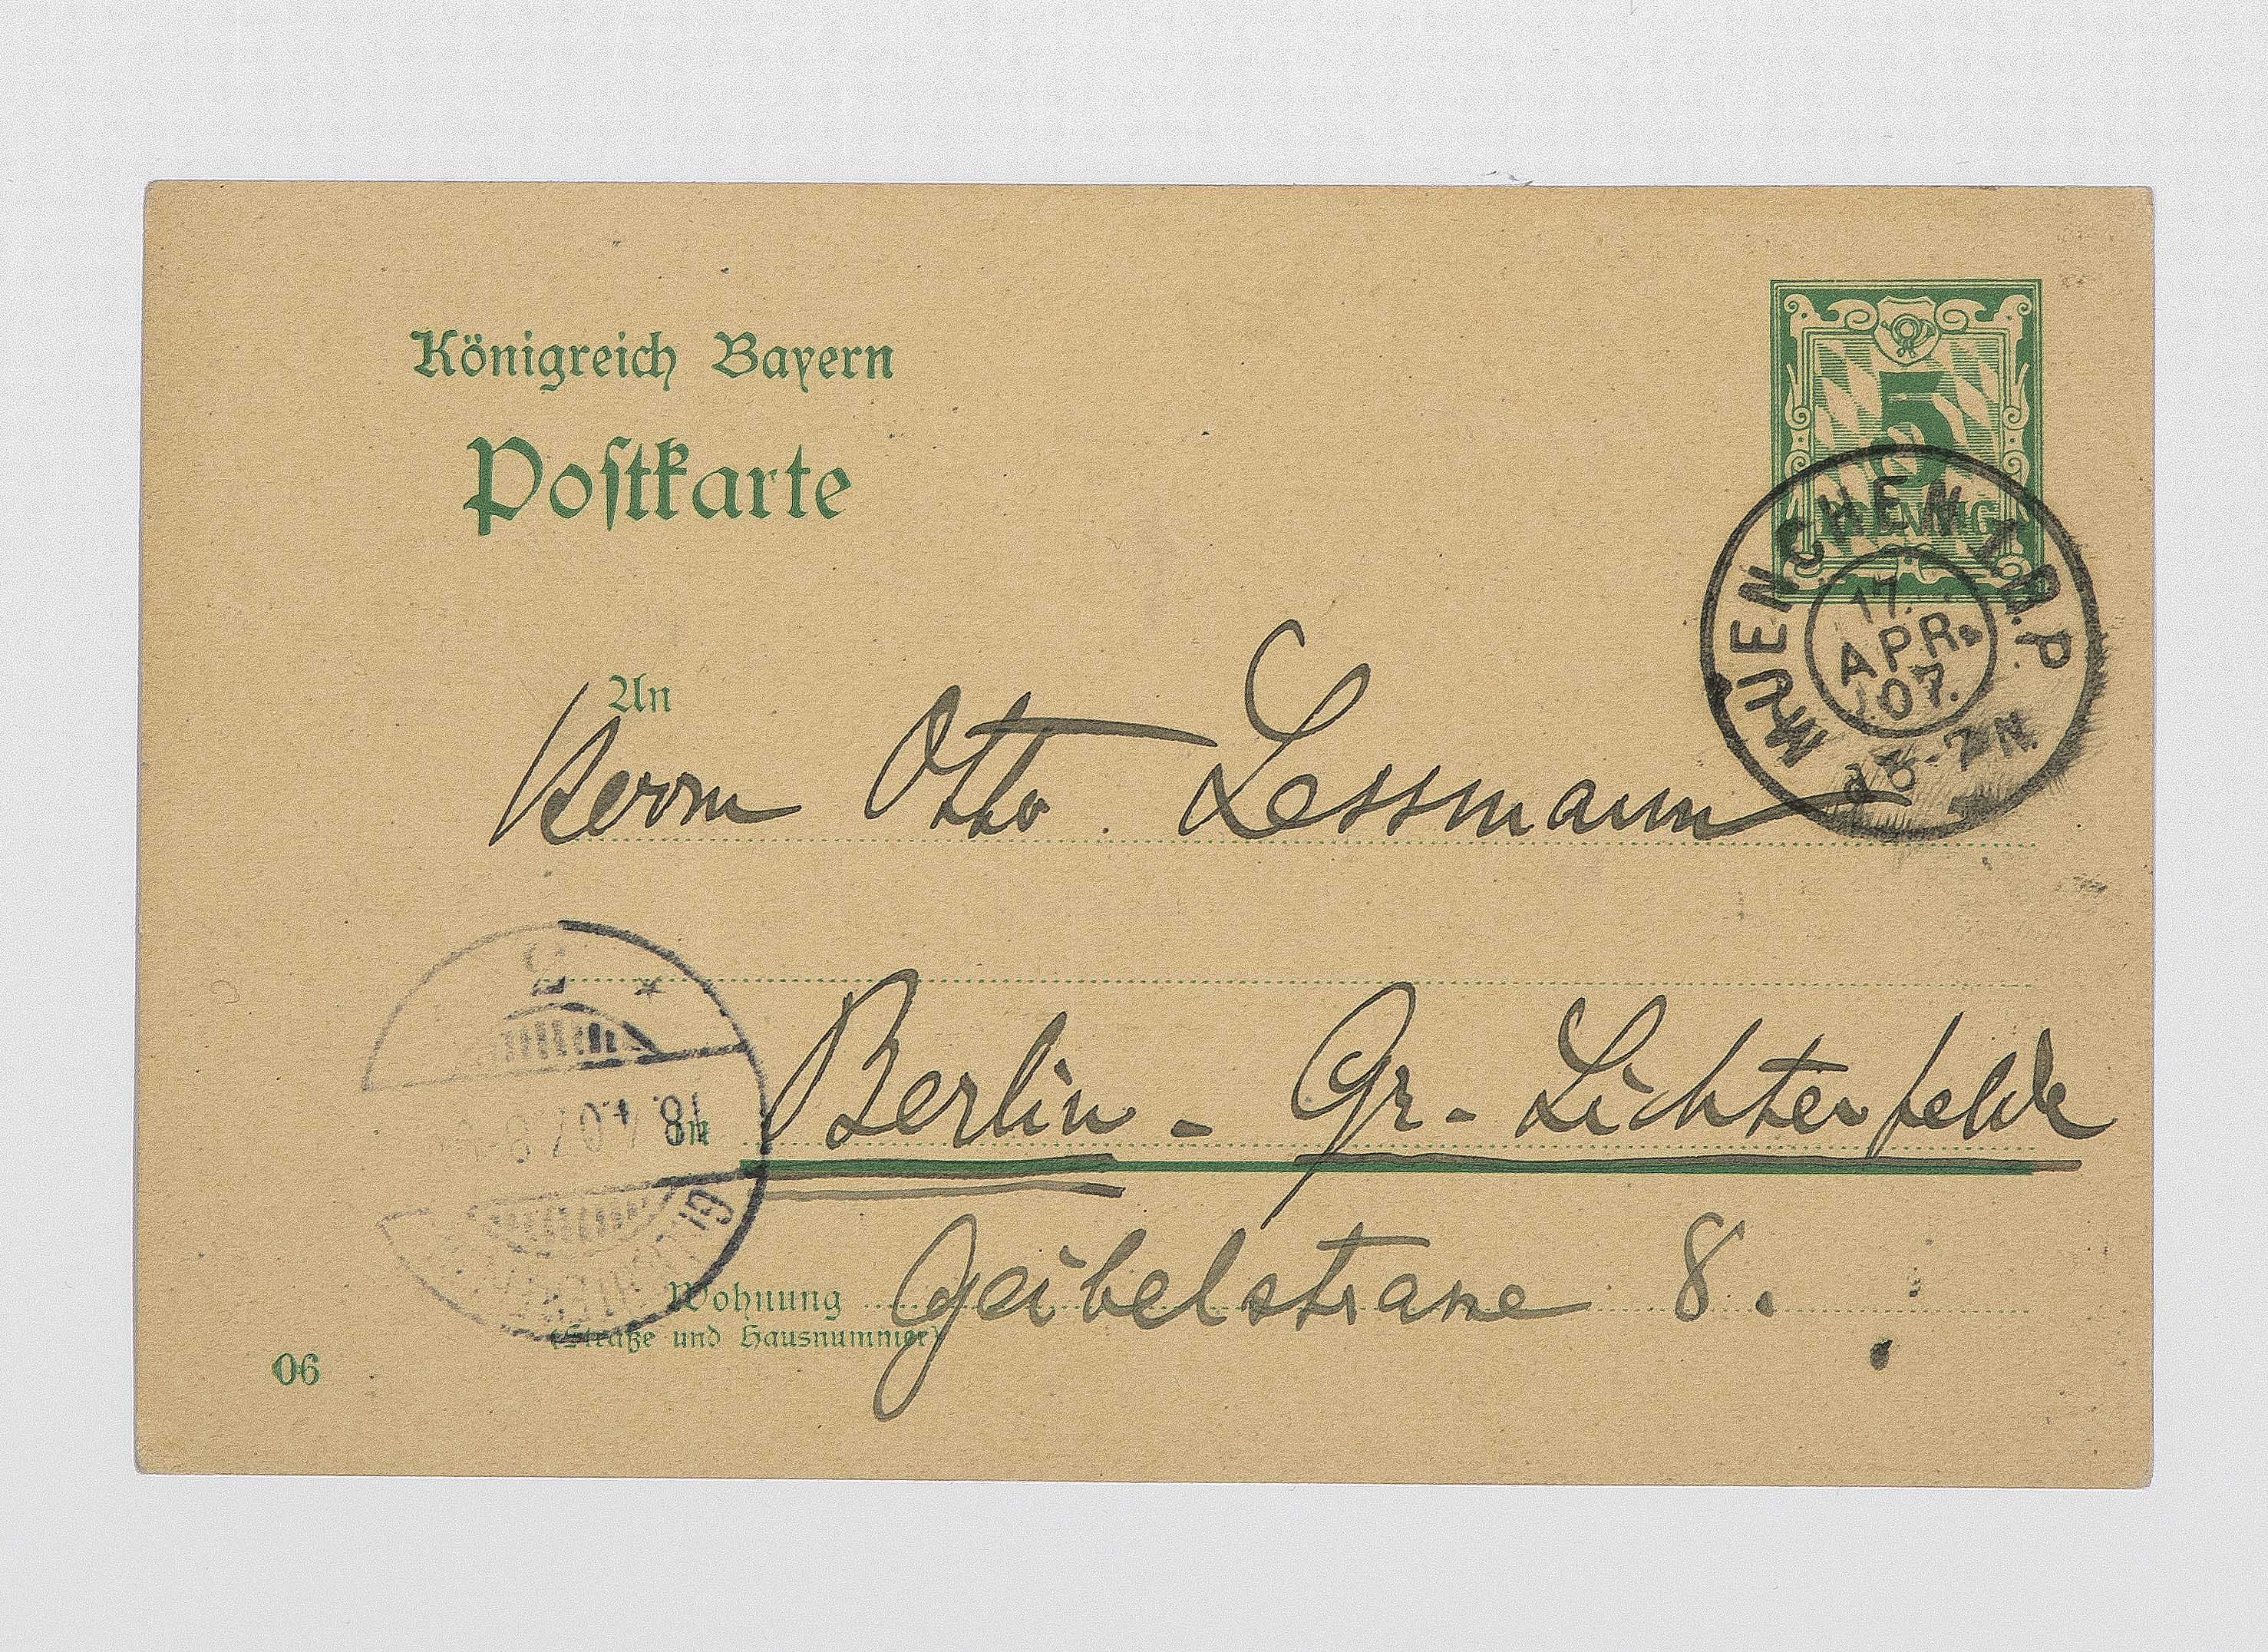 Königreich Bayern
Postkarte
5
PFENNIG
MUENCHEN I.B.P.
17.
APR.
07.
An
Herrn Otto Lessmann
Berlin - Gr. Lichterfelde
in
18.4.07 8-
Geibelstrasse 8.
Wohnung
(Straße und Hausnummer)
06